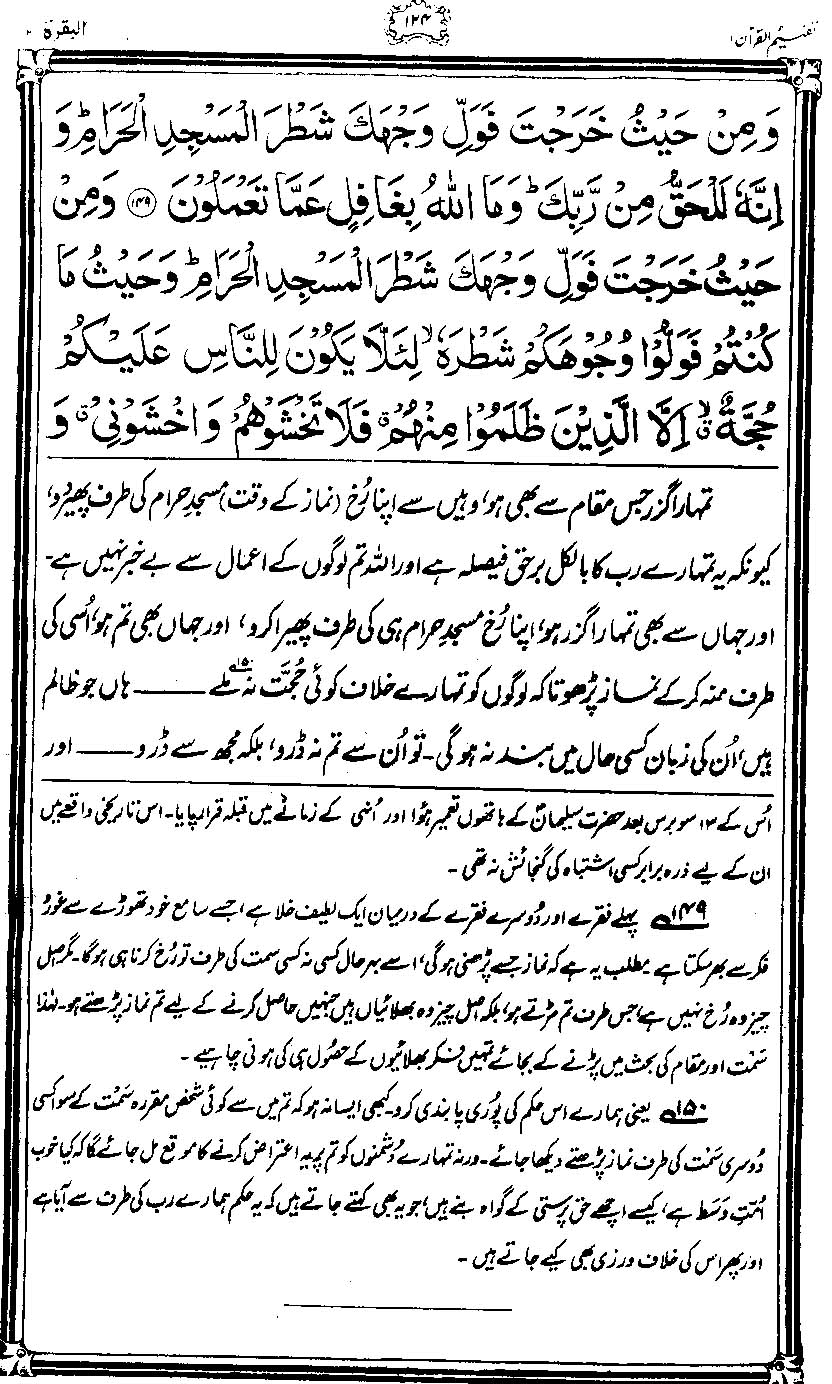 تفہیم القرآن ۱
۱۲۴
البقرة ۲
وَ مِنْ حَيْثُ خَرَجْتَ فَوَلِّ وَجْهَكَ شَطْرَ الْمَسْجِدِ الْحَرَامِ ؕ وَ
اِنَّهٗ لَلْحَقُّ مِنْ رَّبِّكَ ؕ وَمَا اللّٰهُ بِغَافِلٍ عَمَّا تَعْمَلُوْنَ ﴿۱۴۹﴾ وَمِنْ
حَيْثُ خَرَجْتَ فَوَلِّ وَجْهَكَ شَطْرَ الْمَسْجِدِ الْحَرَامِ ؕ وَحَيْثُ مَا
كُنْتُمْ فَوَلُّوْا وُجُوْهَكُمْ شَطْرَهٗ ۙ لِئَلَّا يَكُوْنَ لِلنَّاسِ عَلَيْكُمْ
حُجَّةٌ ۙۗ اِلَّا الَّذِيْنَ ظَلَمُوْا مِنْهُمْ ۗ فَلَا تَخْشَوْهُمْ وَاخْشَوْنِيْ ۗ وَ
تمہارا گزر جس مقام سے بھی ہو، وہیں سے اپنا رُخ (نماز کے وقت) مسجدِ حرام کی طرف پھیر دو،
کیونکہ یہ تمہارے رب کا بالکل برحق فیصلہ ہے اور اللہ تم لوگوں کے اعمال سے بے خبر نہیں ہے۔
اور جہاں سے بھی تمہارا گزر ہو، اپنا رُخ مسجدِ حرام ہی کی طرف پھیرا کرو، اور جہاں بھی تم ہو، اُسی کی
طرف منہ کر کے نماز پڑھو تاکہ لوگوں کو تمہارے خلاف کوئی حُجَّت نہ ملے۱۵۰ـــــ ہاں جو ظالم
ہیں، اُن کی زبان کسی حال میں بند نہ ہو گی۔ تو اُن سے تم نہ ڈرو، بلکہ مجھ سے ڈروـــــ اور
اُس کے ۱۳ سو برس بعد حضرت سلیمانؑ کے ہاتھوں تعمیر ہوا اور اُنہی کے زمانے میں قبلہ قرار پایا۔ اس تاریخی واقعے میں
ان کے لیے ذرہ برابر کسی اشتباہ کی گنجائش نہ تھی۔
۱۴۹ پہلے فقرے اور دُوسرے فقرے کے درمیان ایک لطیف خلا ہے، جسے سامع خود تھوڑے سے غور و
فکر سے بھر سکتا ہے۔ مطلب یہ ہے کہ نماز جسے پڑھنی ہو گی، اسے بہر حال کسی نہ کسی سمت کی طرف تو رُخ کرنا ہی ہو گا۔ مگر اصل
چیز وہ رُخ نہیں ہے، جس طرف تم مڑتے ہو، بلکہ اصل چیز وہ بھلائیاں ہیں جنہیں حاصل کرنے کے لیے تم نماز پڑھتے ہو۔ لہٰذا
سَمْت اور مقام کی بحث میں پڑنے کے بجائے تمہیں فکر بھلائیوں کے حصُول ہی کی ہونی چاہیے۔
۱۵۰ یعنی ہمارے اس حکم کی پُوری پابندی کرو۔ کبھی ایسا نہ ہو کہ تم میں سے کوئی شخص مقررہ سَمْت کے سوا کسی
دُوسری سَمْت کی طرف نماز پڑھتے دیکھا جائے۔ ورنہ تمہارے دُشمنوں کو تم پر یہ اعتراض کرنے کا موقع مل جائے گا کہ کیا خوب
اُمّتِ وَسَط ہے، کیسے اچھے حق پرستی کے گواہ بنے ہیں، جو یہ بھی کہتے جاتے ہیں کہ یہ حکم ہمارے رب کی طرف سے آیا ہے
اور پھر اس کی خلاف ورزی بھی کیے جاتے ہیں۔